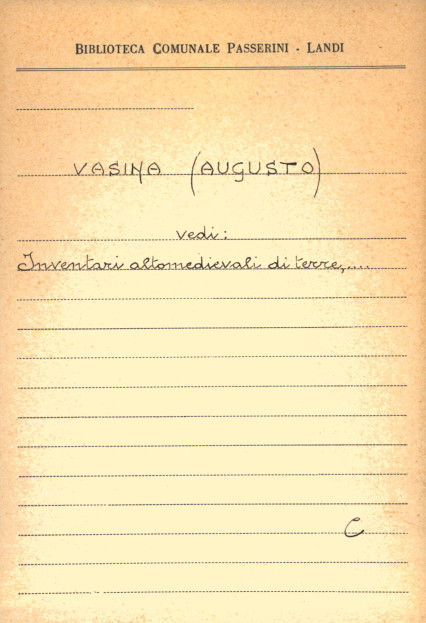 BIBLIOTECA COMUNALE PASSERINI - LANDI
VASINA (AUGUSTO)
vedi:
Inventari altomedievali di terre,....
C